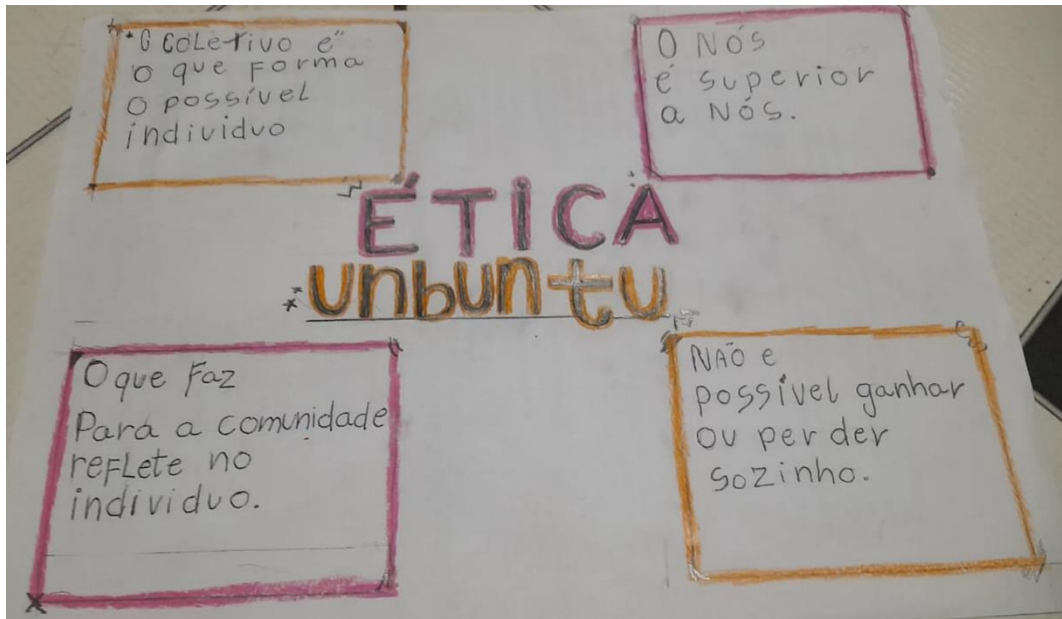 "O COLETIVO é"
o que Forma
o possível
individuo
O NÓS
é superior
a NÓS.
ÉTICA
unbuntu
O que Faz
Para a comunidade
reFLete no
individuo.
NÃO e
possível ganhar
ou perder
sozinho.